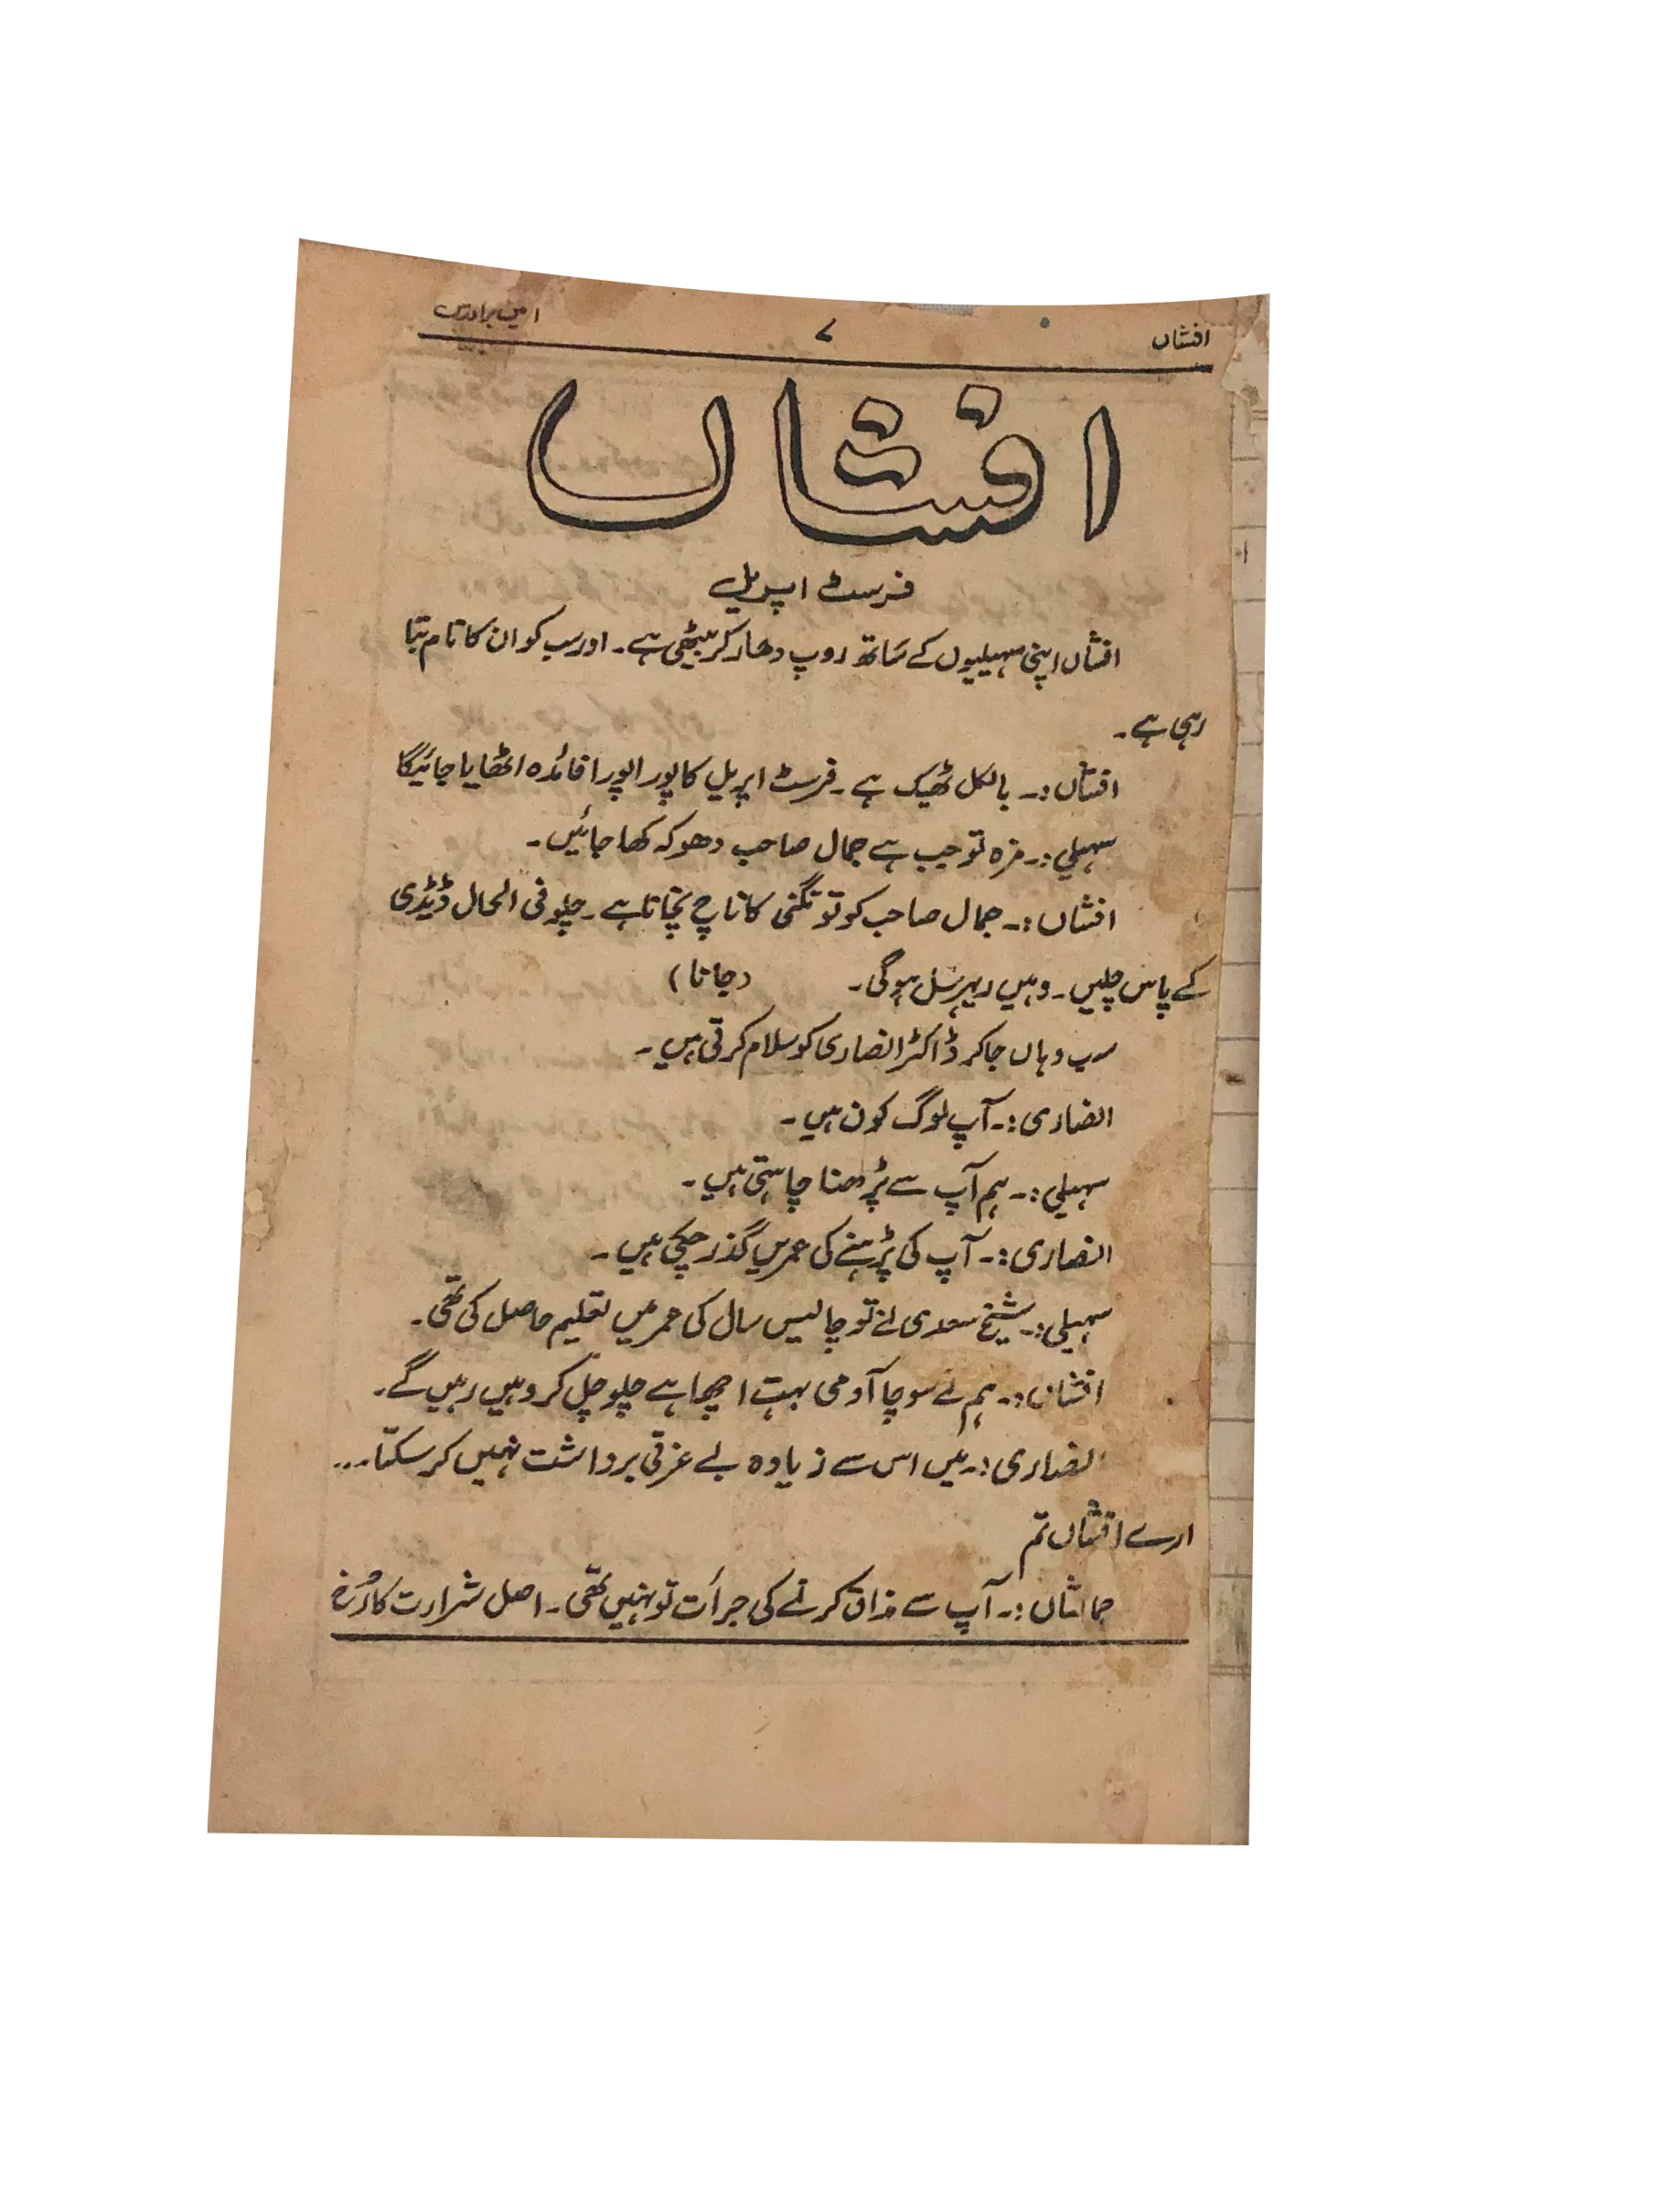 افشاں ۷ امین برادرس
افشاں
فرسٹ اپریل
افشاں اپنی سہیلیوں کے ساتھ روپ دھار کر بیٹھی ہے۔ اور سب کو ان کا نام بتا
رہی ہے۔
افشاں:۔ بالکل ٹھیک ہے۔ فرسٹ اپریل کا پورا پورا فائدہ اٹھایا جائیگا
سہیلی:۔ مزہ تو جب ہے جمال صاحب دھوکہ کھا جائیں۔
افشاں:۔ جمال صاحب کو تو تگنی کا ناچ نچانا ہے۔ چلو فی الحال ڈیڈی
کے پاس چلیں۔ وہیں ریہرسل ہوگی۔ (جانا)
سب وہاں جاکر ڈاکٹر انصاری کو سلام کرتی ہیں۔
انصاری:۔ آپ لوگ کون ہیں۔
سہیلی:۔ ہم آپ سے پڑھنا چاہتی ہیں۔
انصاری:۔ آپ کی پڑہنے کی عمریں گذر چکی ہیں۔
سہیلی:۔ شیخ سعدی نے تو چالیس سال کی عمر میں تعلیم حاصل کی تھی۔
افشاں:۔ ہم نے سوچا آدمی بہت اچھا ہے چلو چل کر وہیں رہیں گے۔
انصاری:۔ میں اس سے زیادہ بے عزتی برداشت نہیں کر سکتا۔۔۔
ارے افشاں تم
:۔ آپ سے مذاق کرنے کی جرأت تو نہیں تھی۔ اصل شرارت کا رُخ